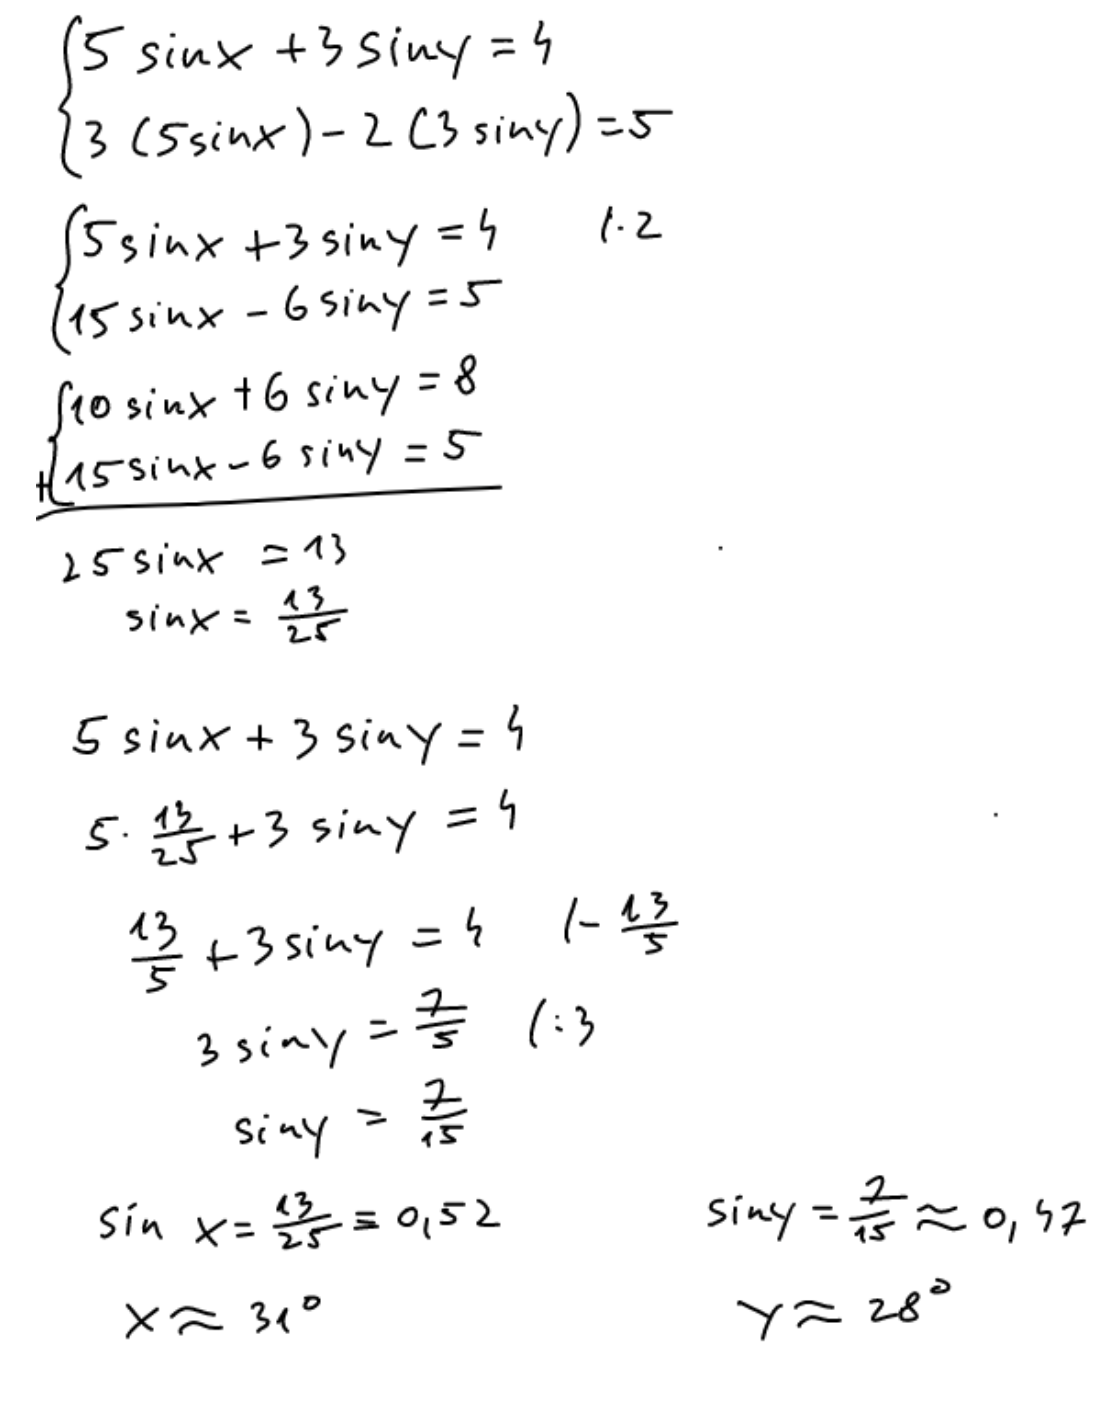 5 sinx + 3 siny = 4
3 (5sinx) - 2 (3 siny) = 5
5 sinx + 3 siny = 4 /·2
15 sinx - 6 siny = 5
10 sinx + 6 siny = 8
+ 15 sinx - 6 siny = 5
25 sinx = 13
sinx = 13/25
5 sinx + 3 siny = 4
5 · 13/25 + 3 siny = 4
13/5 + 3 siny = 4 /- 13/5
3 siny = 7/5 /:3
siny = 7/15
sin x = 13/25 = 0,52 siny = 7/15 ≈ 0,47
x ≈ 31° y ≈ 28°